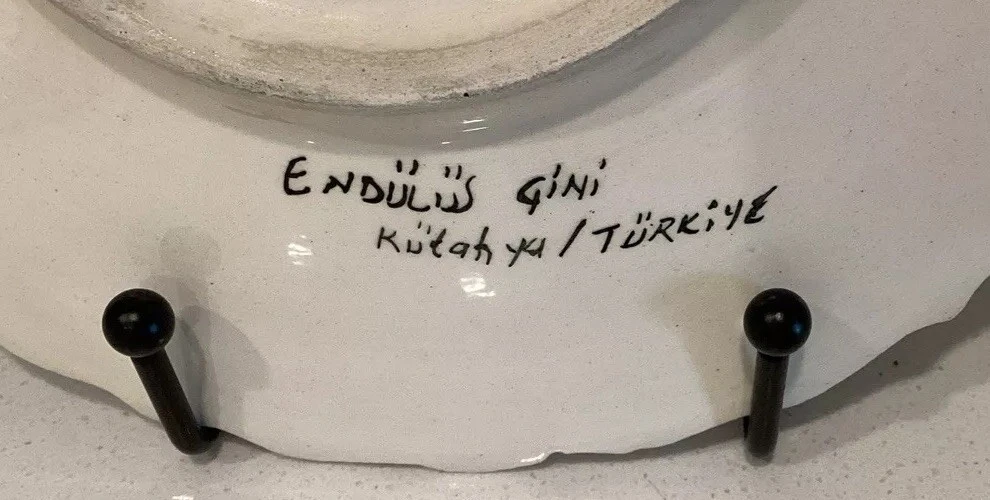 ENDÜLÜS ÇİNİ
Kütahya / TÜRKİYE